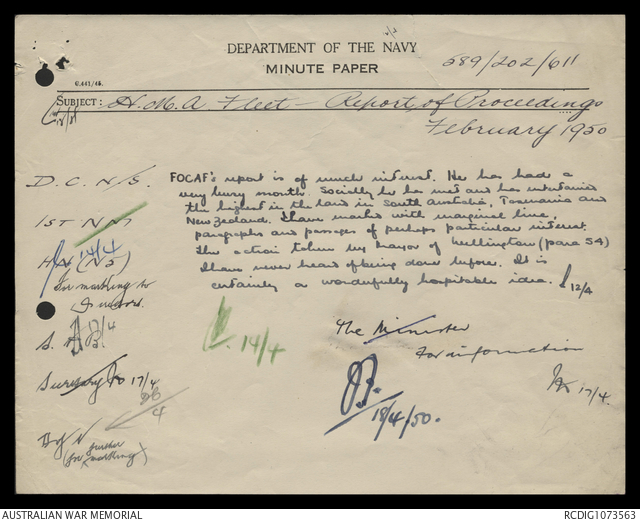 DEPARTMENT OF THE NAVY
MINUTE PAPER
589/202/611
G.441/45.
SUBJECT: H.M.A Fleet - Report of Proceedings
February 1950
D.C. N/S.
FOCAF's report is of much interest. He has had a
very busy month. Socially he has met and has entertained
the highest in the land in South Australia, Tasmania and
1ST N M
New Zealand. I have marked with marginal line,
paragraphs and passages of perhaps particular interest.
14/4
The action taken by Mayor of Wellington (para 54)
(NS)
I have never heard of being done before. It is
for marking to
certainly a wonderfully hospitable idea. 12/4
17/4
14/4
The Minister
for information
Secretary 17/4
17/4.
18/4/50.
D of N
(for further
marking)
AUSTRALIAN WAR MEMORIAL
RCDIG1073563